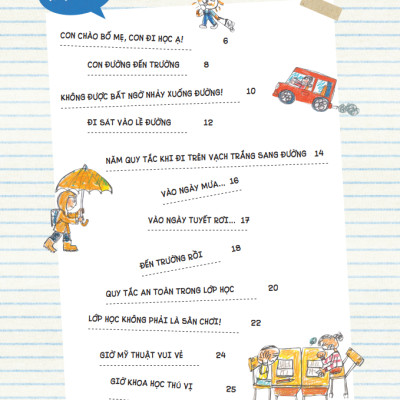 CON CHÀO BỐ MẸ, CON ĐI HỌC Ạ! 6
CON ĐƯỜNG ĐẾN TRƯỜNG 8
KHÔNG ĐƯỢC BẤT NGỜ NHẢY XUỐNG ĐƯỜNG! 10
ĐI SÁT VÀO LỀ ĐƯỜNG 12
NĂM QUY TẮC KHI ĐI TRÊN VẠCH TRẮNG SANG ĐƯỜNG 14
VÀO NGÀY MƯA... 16
VÀO NGÀY TUYẾT RƠI... 17
ĐẾN TRƯỜNG RỒI 18
QUY TẮC AN TOÀN TRONG LỚP HỌC 20
LỚP HỌC KHÔNG PHẢI LÀ SÂN CHƠI! 22
GIỜ MỸ THUẬT VUI VẺ 24
GIỜ KHOA HỌC THÚ VỊ 25